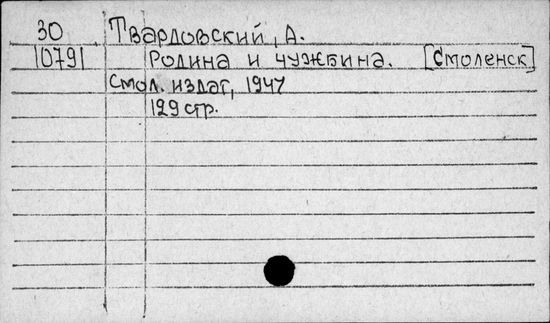 30 Твардовский, А.
10791 Родина и чужбина. [Смоленск]
Смол. издат, 1947
129 стр.